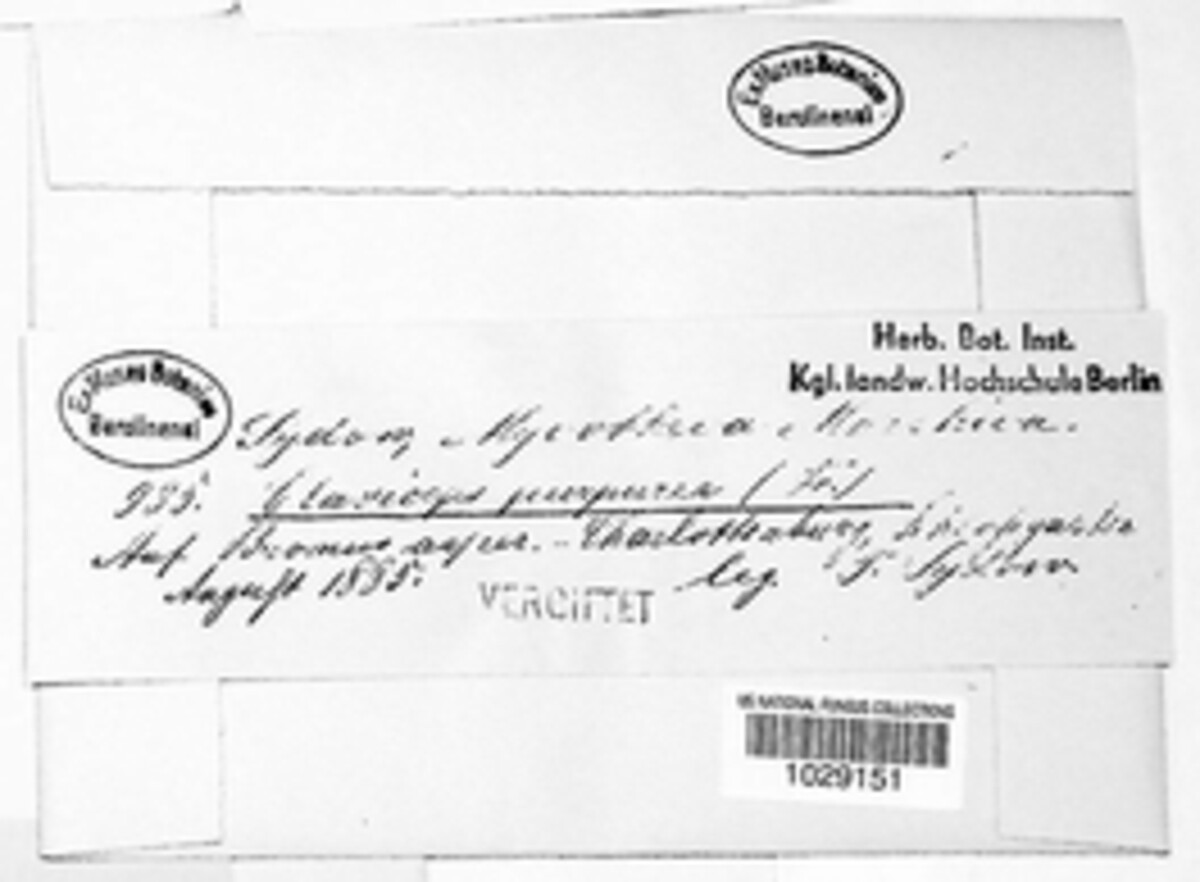 Ex Museo Botanico
Berolinensi
Herb. Bot. Inst.
Kgl. landw. Hochschule Berlin
Ex Museo Botanico
Berolinensi
Sydow, Mycotheca Marchica.
935. Claviceps purpurea (Fr.)
Auf Bromus asper. – Charlottenburg, Schlossgarten
August 1885. leg. P. Sydow
VERGIFTET
US NATIONAL FUNGUS COLLECTIONS
1029151